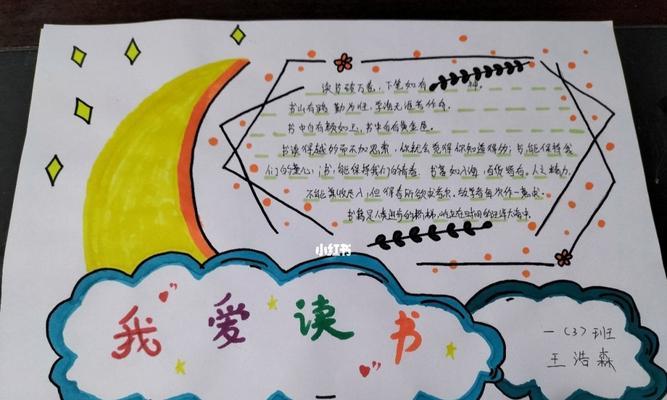 读书破万卷，下笔如有神。
书山有路勤为径，学海无涯苦作舟。
书中自有颜如玉，书中自有黄金屋。
书读得越多而不加思索，你就会觉得你知道得很多；书，能保持我
们的童心；书，能保持我们的青春。书籍如入海，百货皆有，人之精力，
不能兼收尽入，但得春所欲求者尔，故学者每次作一意求
书籍是人类进步的阶梯，
小红书
我爱读书
一（3）班
王浩森